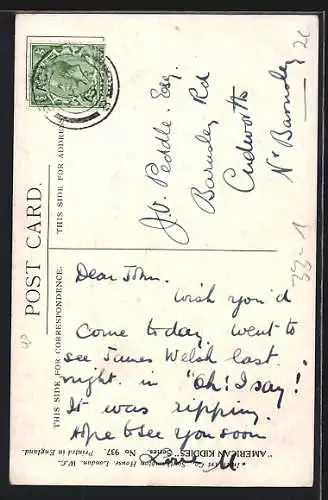 POST CARD.
THIS SIDE FOR CORRESPONDENCE.
THIS SIDE FOR ADDRESS
J.V. Peddle. Esq.
Barnsley Rd
Cudworth
Nr Barnsley
33-1
Dear John.
Wish you'd
Come today. went to
see James Welsh last
night. in "Oh! I say!"
It was ripping.
Hope to see you soon
Love
"AMERICAN KIDDIES" Series. No 937. Printed in England.
Southampton House, London, W.C.